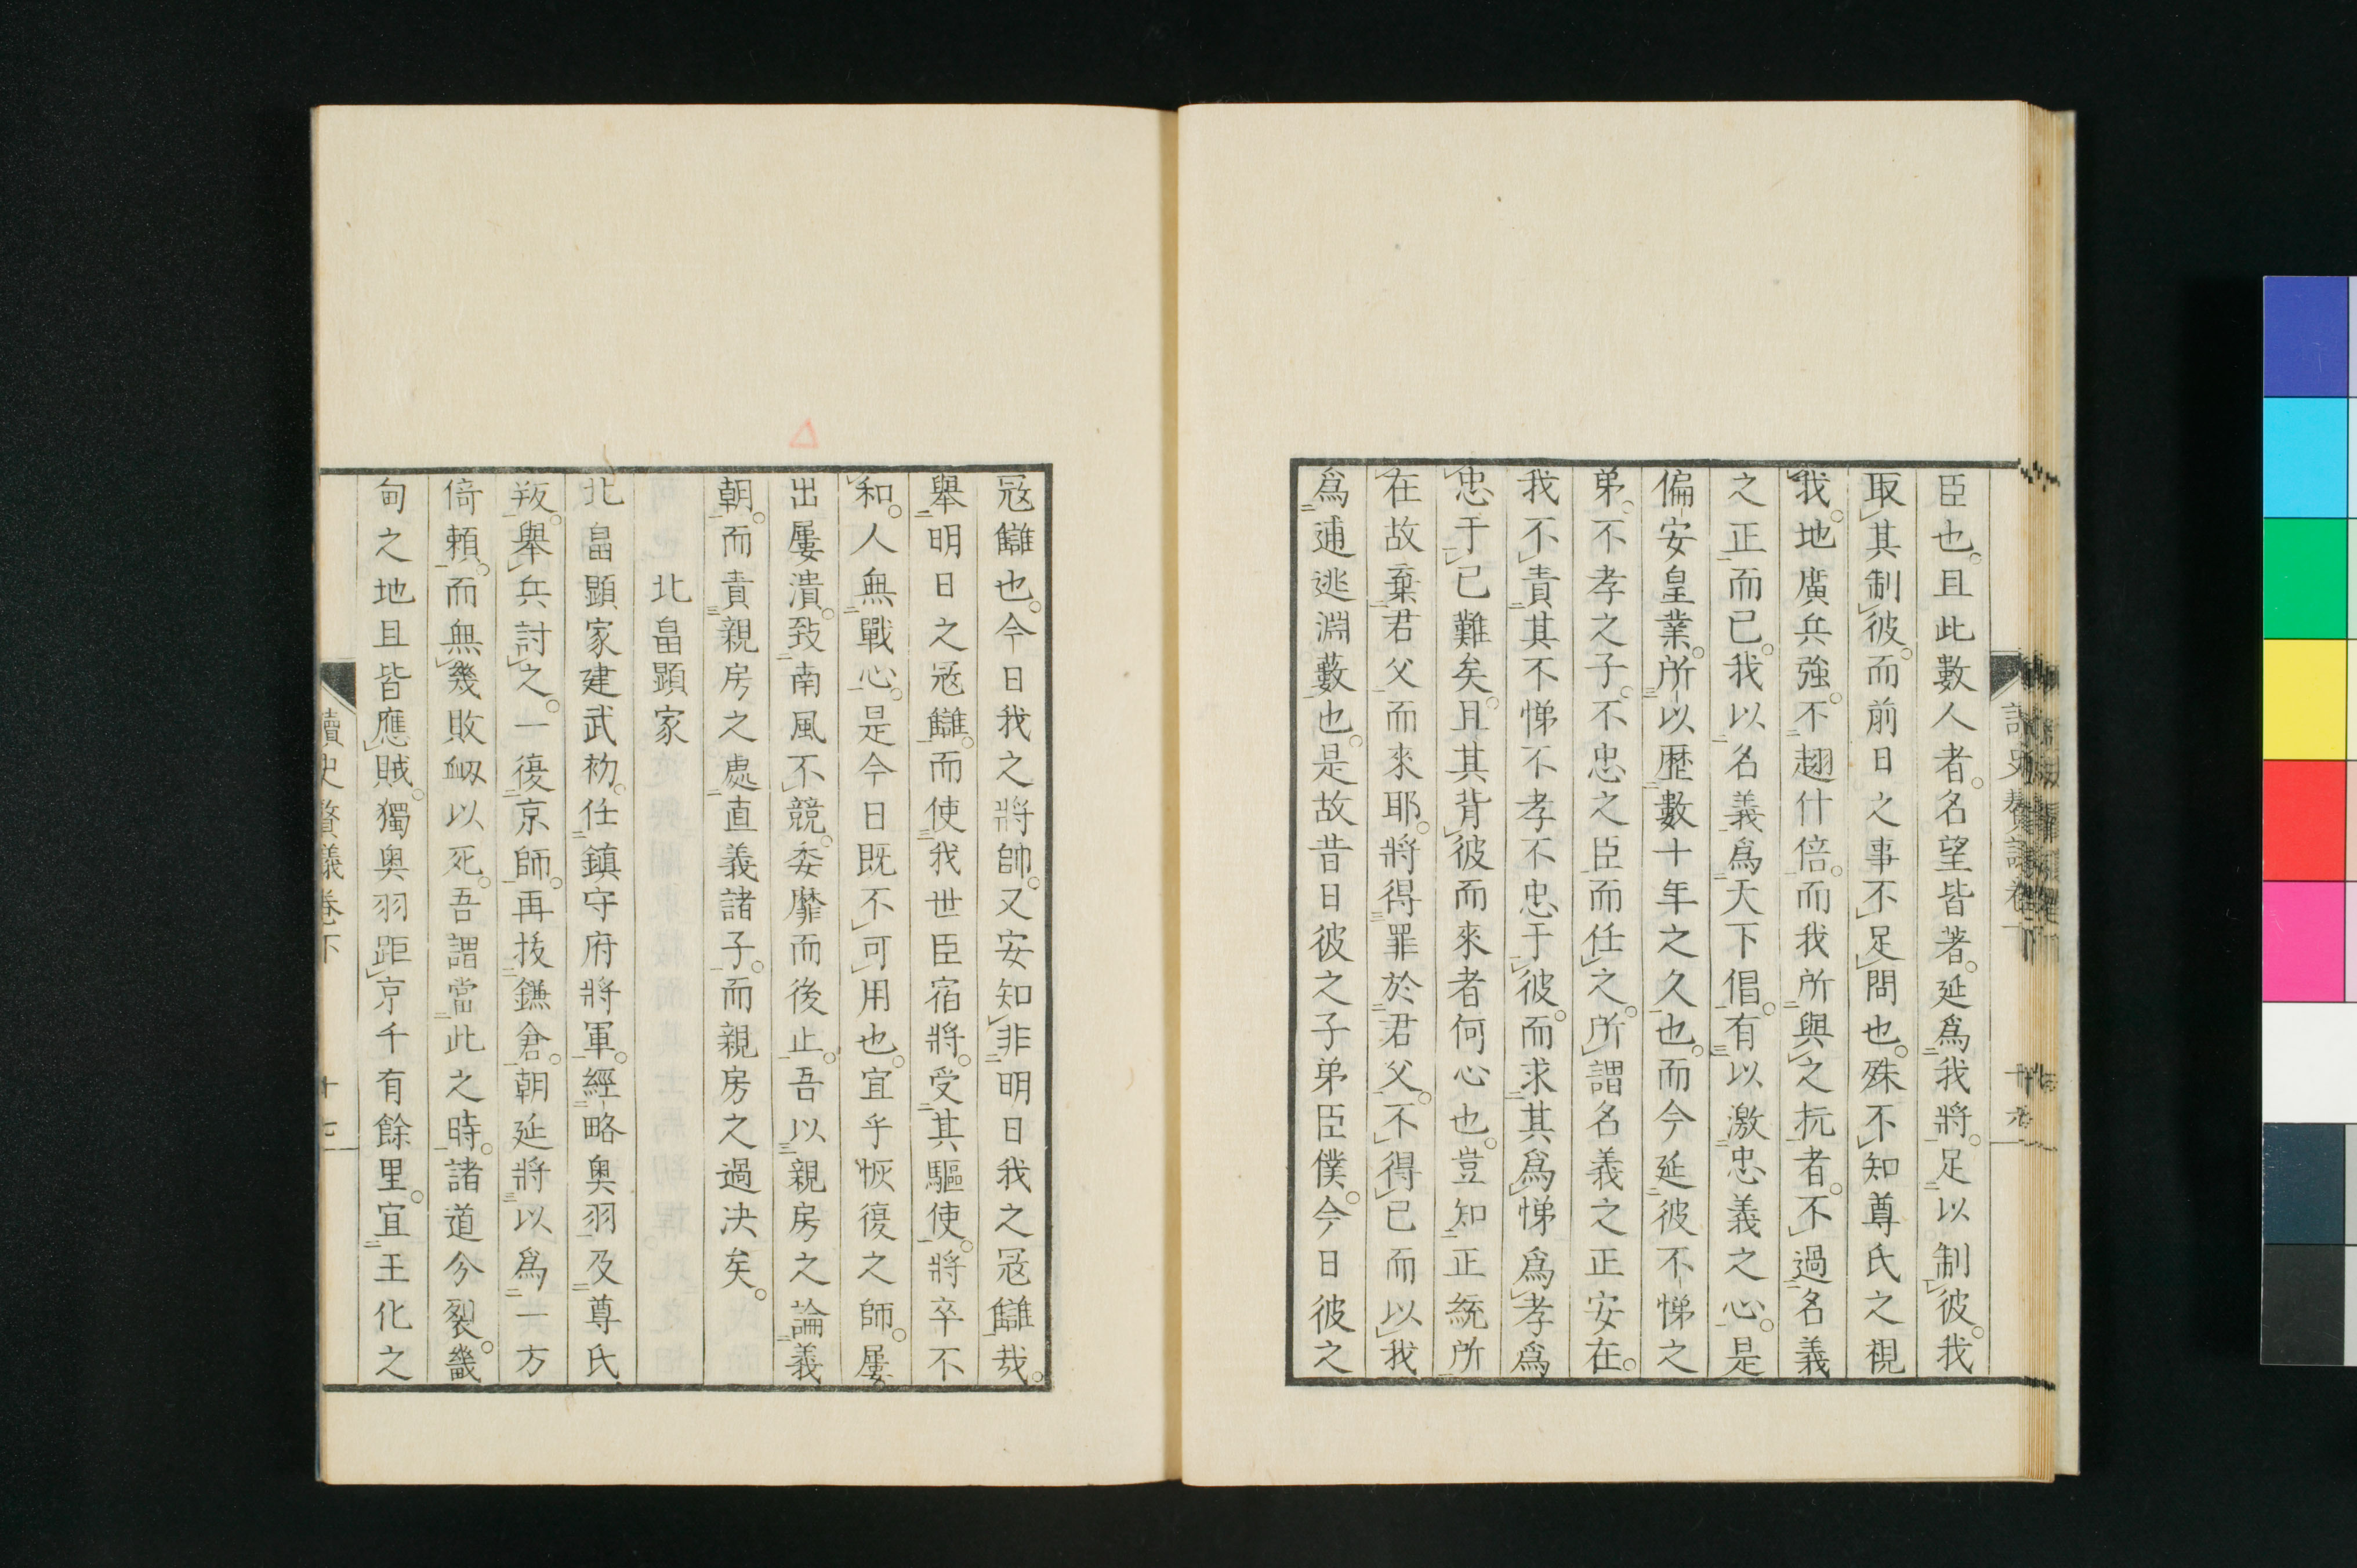 臣也。且此數人者。名望皆著。延爲我將。足以制彼。我
取其制彼。而前日之事不足問也。殊不知尊氏之視
我。地廣兵強。不趐什倍。而我所與之抗者。不過名義
之正而已。我以名義爲天下倡。有以激忠義之心。是
偏安皇業。所以歷數十年之久也。而今延彼不悌之
弟。不孝之子。不忠之臣而任之。所謂名義之正安在。
我不責其不悌不孝不忠于彼。而求其爲悌爲孝爲
忠于已難矣。且其背彼而來者何心也。豈知正統所
在故棄君父而來耶。將得罪於君父。不得已而以我
爲逋逃淵藪也。是故昔日彼之子弟臣僕。今日彼之
冦讎也。今日我之將帥。又安知非明日我之冦讎哉。
舉明日之冦讎。而使我世臣宿將。受其驅使。將卒不
和。人無戰心。是今日既不可用也。宜乎恢復之師。屢
出屢潰。致南風不競。委靡而後止。吾以親房之論義
朝。而責親房之處直義諸子。而親房之過决矣。
北畠顯家
北畠顯家建武初。任鎮守府將軍。經略奥羽及尊氏
叛。舉兵討之。一復京師。再拔鎌倉。朝延將以爲一方
倚頼。而無幾敗衂以死。吾謂當此之時。諸道分裂。畿
甸之地且皆應賊。獨奥羽距京千有餘里。宜王化之
讀史贅議卷下
十七